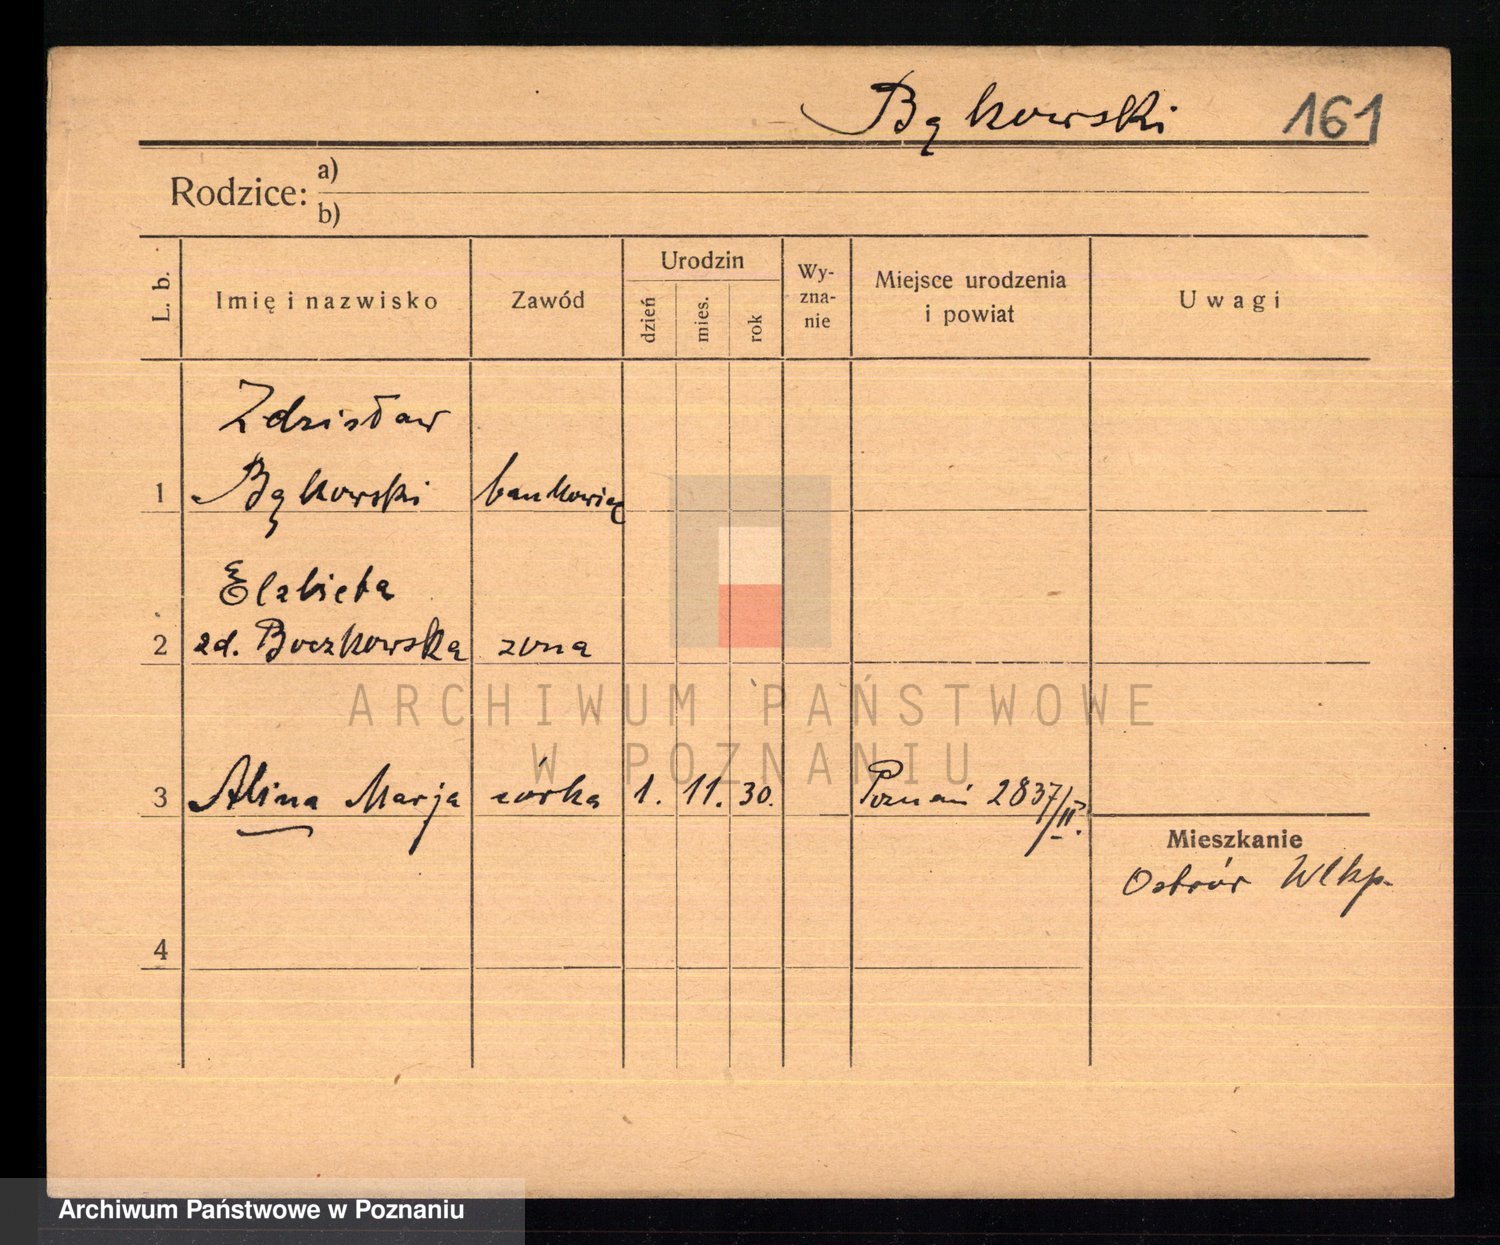 Bąkowski 161
Rodzice: a)
b)
L. b. Imię i nazwisko Zawód Urodzin dzień mies. rok Wy-zna-nie Miejsce urodzenia i powiat Uwagi
Zdzisław
1 Bąkowski bankowiec
Elżbieta
2 zd. Boczkowska żona
3 Alina Marja córka 1. 11. 30. Poznań 2837/II.
Mieszkanie
Ostrów Wlkp.
4
ARCHIWUM PAŃSTWOWE
W POZNANIU
Archiwum Państwowe w Poznaniu